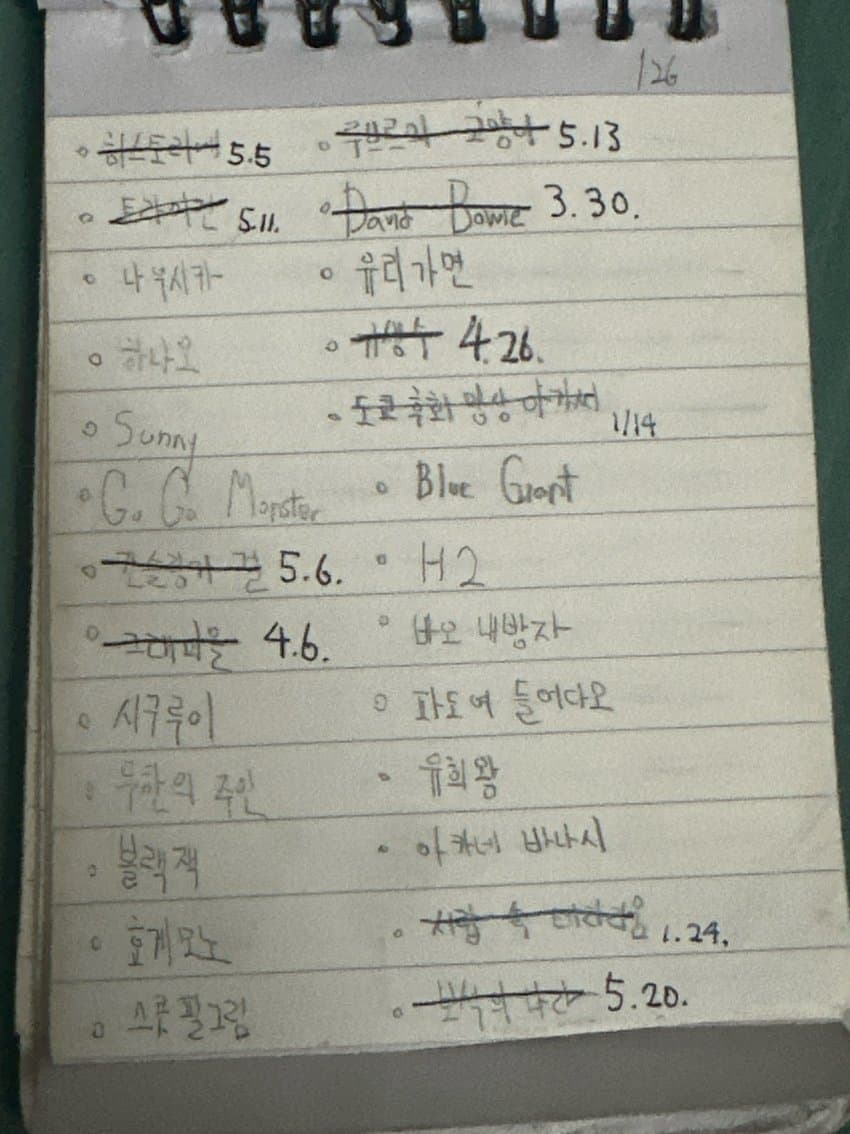 1/26
히스토리에 5.5
트라이건 5.11.
나우시카
하나오
Sunny
Go Go Monster
건슬링거 걸 5.6.
그래피올 4.6.
시구루이
무한의 주인
블랙잭
효게모노
스콧 필그림
루브르의 고양이 5.13
David Bowie 3.30.
유리가면
기생수 4.26.
도쿄 흑화 망상 아가씨 1/14
Blue Giant
H2
바오 내방자
파도여 들어다오
유희왕
아카네 바나시
서랍 속 테라리움 1.24.
보석의 나라 5.20.